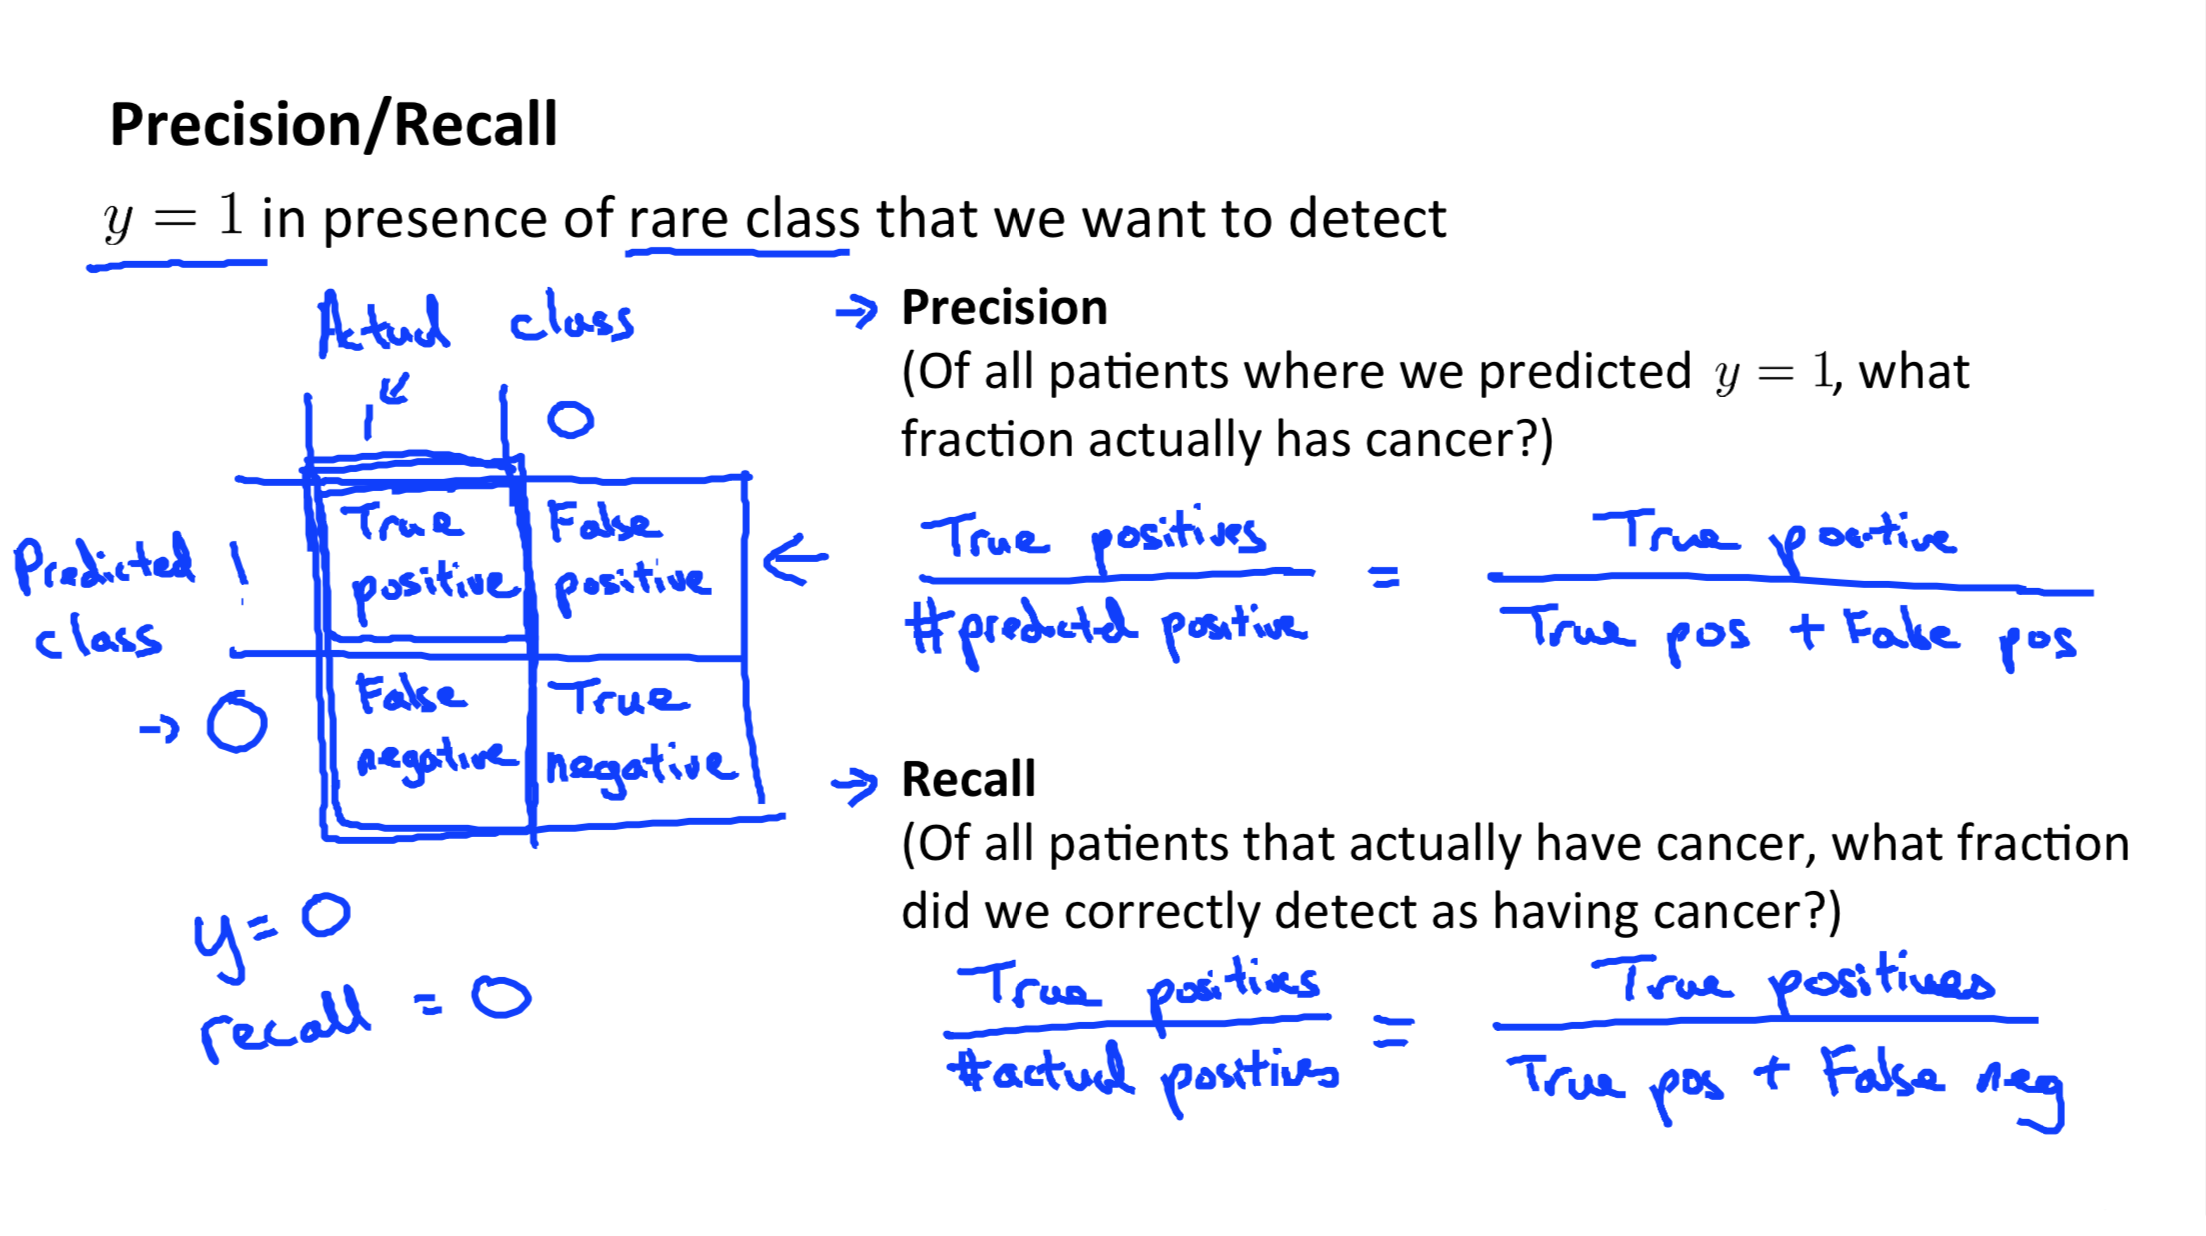 Precision/Recall
y = 1 in presence of rare class that we want to detect
Actual class
1 0
Predicted class
1
True positive
False positive
→ 0
False negative
True negative
y = 0
recall = 0
→ Precision
(Of all patients where we predicted y = 1, what
fraction actually has cancer?)
True positives / #predicted positive = True positive / True pos + False pos
→ Recall
(Of all patients that actually have cancer, what fraction
did we correctly detect as having cancer?)
True positives / #actual positives = True positives / True pos + False neg